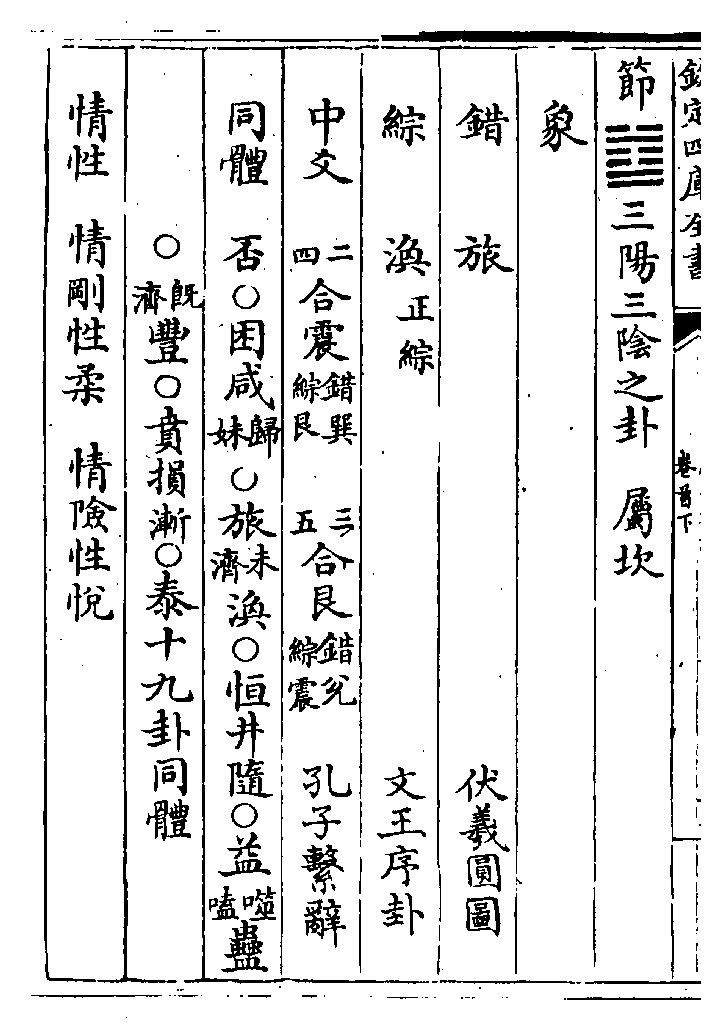 欽定四庫全書
卷首下
節䷻三陽三陰之卦 屬坎
象
錯 旅 伏羲圓圖
綜 渙 正綜 文王序卦
中爻 二四合震錯巽綜艮 三五合艮錯兌綜震 孔子繫辭
同體 否○困咸歸妹○旅未濟渙○恒井隨○益噬嗑蠱
○既濟豐○賁損漸○泰十九卦同體
情性 情剛性柔 情險性悅